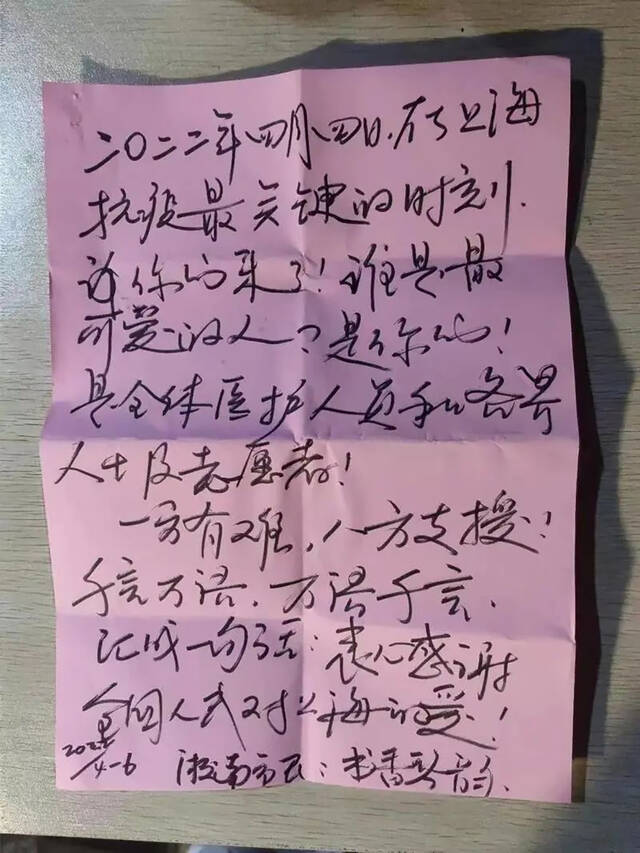 二〇二二年四月四日，在上海
抗疫最关键的时刻，
你们来了！谁是最
可爱的人？是你们！
是全体医护人员和各界
人士及志愿者！
一方有难，八方支援！
千言万语，万语千言，
汇成一句话：衷心感谢
全国人民对上海的爱！
2022
4-6
淞南市民：书香